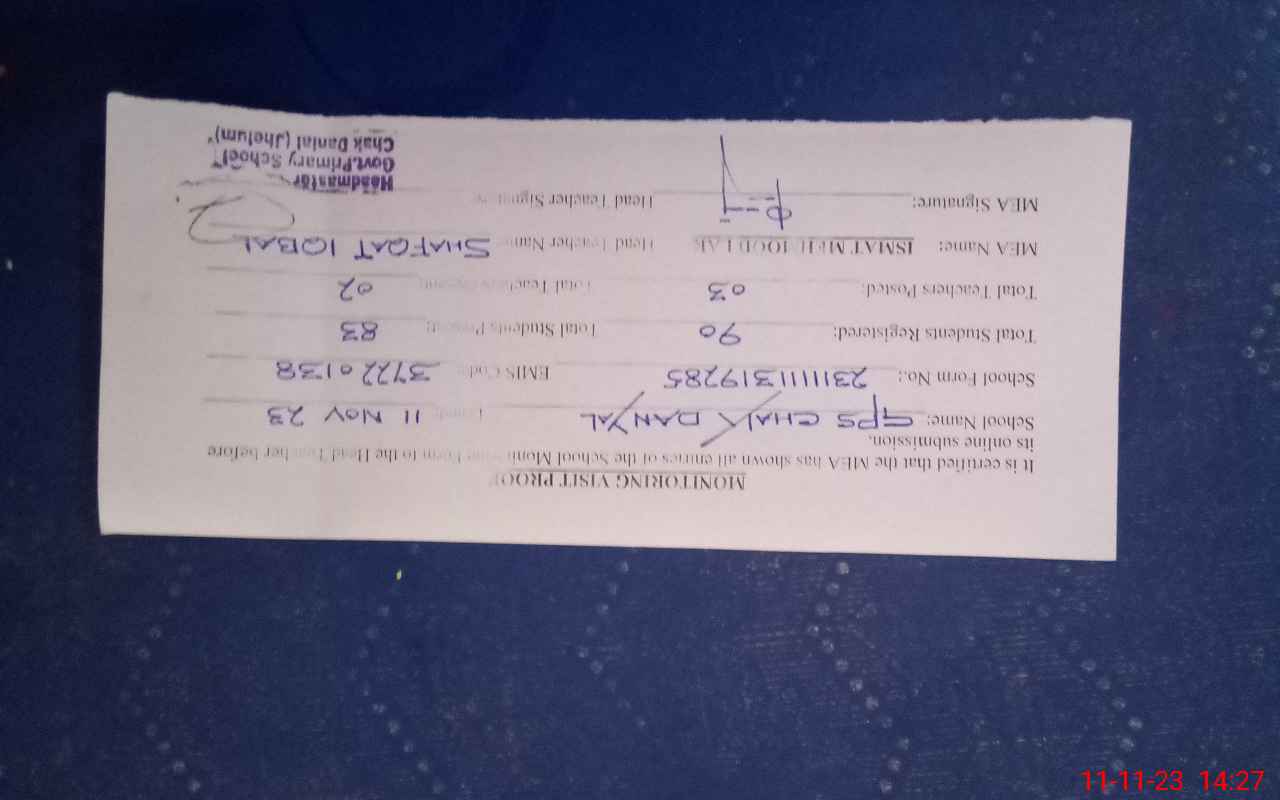 MONITORING VISIT PROOF
It is certified that the MEA has shown all entries of the School Monitoring Form to the Head Teacher before
its online submission.
School Name: GPS CHAK DANYAL 11 NOV 23
School Form No.: 231111319285 EMIS Code: 37220138
Total Students Registered: 90 Total Students Present: 83
Total Teachers Posted: 03 Total Teachers Present: 02
MEA Name: ISMAT MEHMOOD Head Teacher Name: SHAFQAT IQBAL
MEA Signature: Head Teacher Signature
Headmaster
Govt.Primary School
Chak Danial (Jhelum)
11-11-23 14:27